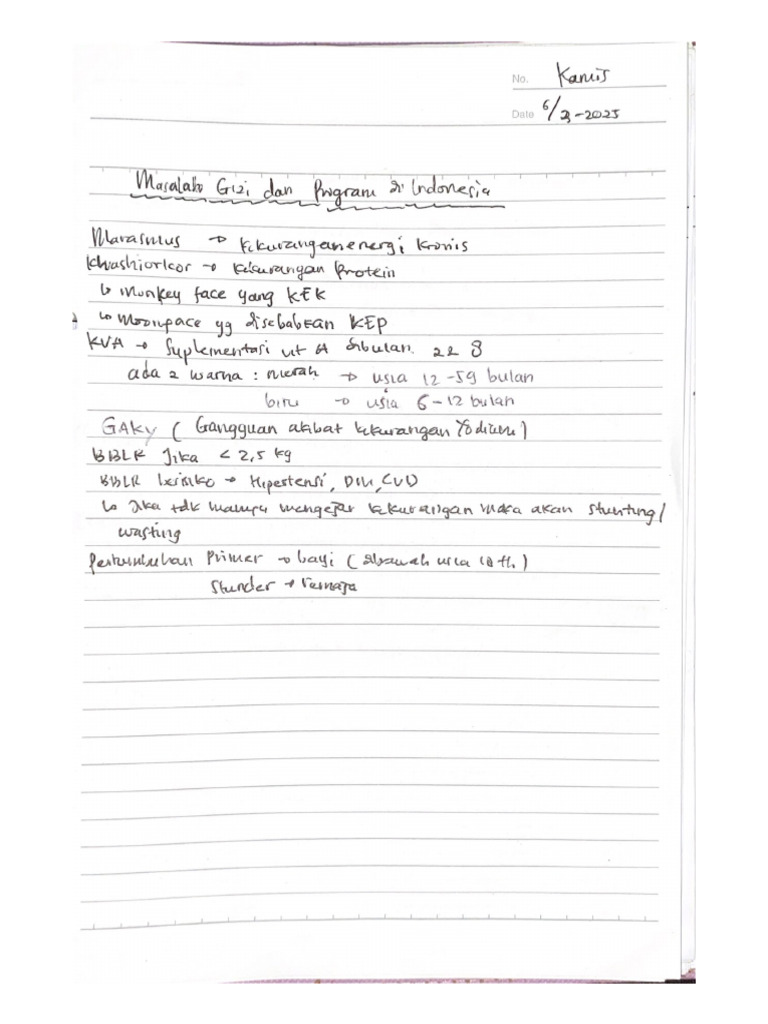 No. Kamis
Date 6/3-2025
Masalah Gizi dan Program di Indonesia
Marasmus → kekurangan energi kronis
Khwashiorkor → kekurangan Protein
↳ monkey face yang KEK
↳ Moonpace yg disebabkan KEP
KVA → Suplementasi vit A dibulan 2 & 8
ada 2 warna : merah → usia 12 - 59 bulan
biru → usia 6 - 12 bulan
GAKY ( Gangguan akibat kekurangan Yodium )
BBLR Jika < 2,5 kg
BBLR berisiko → Hipertensi, DM, CVD
↳ Jika tdk mampu mengejar kekurangan maka akan stunting/
wasting
Pertumbuhan Primer → bayi ( dibawah usia 10 th. )
Skunder → remaja